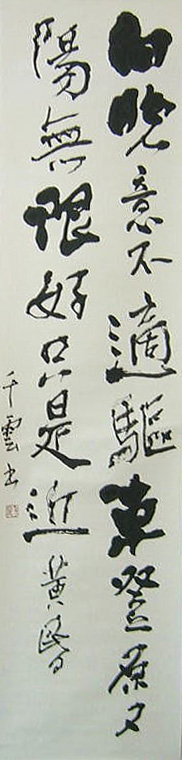 向晚意不適驅車登原夕
陽無限好只是近黃昏
千雲書